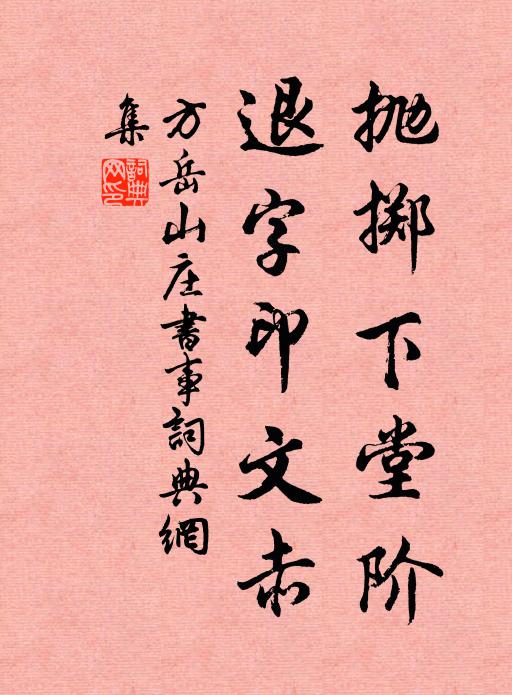 抛掷下堂阶
退字印文赤
方岳山庄書事詞典網
集
詞典網印